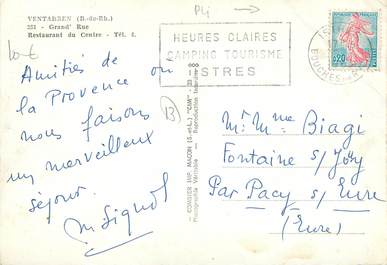 VENTABREN (B.-du-Rh.)
251 - Grand' Rue
Restaurant du Centre - Tél. 5.
Pli
HEURES CLAIRES
CAMPING TOURISME
ISTRES
BOUCHES
0,20
B
Amitiés de
la Provence ou
nous faisons
un merveilleux
séjour.
M Signol
COMBIER IMP. MACON (S.-et-L.) "CIM"
Photographie Véritable - Reproduction Interdite
Mr. Mme Biagi
Fontaine s/ Jouy
Par Pacy s/ Eure
(Eure)